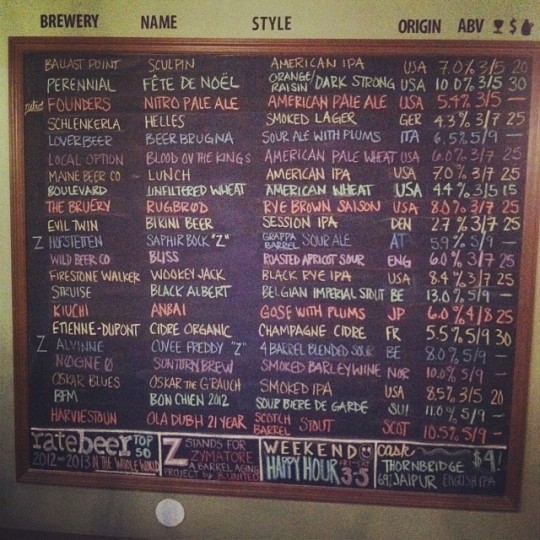 BREWERY NAME STYLE ORIGIN ABV $
BALLAST POINT SCULPIN AMERICAN IPA USA 7.0% 3/5 20
PERENNIAL FÊTE DE NOËL ORANGE/RAISIN/DARK STRONG USA 10.0% 3/5 30
nitro FOUNDERS NITRO PALE ALE AMERICAN PALE ALE USA 5.4% 3/5 —
SCHLENKERLA HELLES SMOKED LAGER GER 4.3% 3/7 25
LOVERBEER BEERBRUGNA SOUR ALE WITH PLUMS ITA 6.5% 5/9 —
LOCAL OPTION BLOOD OV THE KINGS AMERICAN PALE WHEAT USA 6.0% 3/7 25
MAINE BEER CO LUNCH AMERICAN IPA USA 7.0% 3/7 25
BOULEVARD UNFILTERED WHEAT AMERICAN WHEAT USA 4.4% 3/5 15
THE BRUERY RUGBRØD RYE BROWN SAISON USA 8.0% 3/7 25
EVIL TWIN BIKINI BEER SESSION IPA DEN 2.7% 3/7 25
Z HOFSTETTEN SAPHIR BOCK "Z" GRAPPA BARREL SOUR ALE AT 5.9% 5/9 —
WILD BEER CO BLISS ROASTED APRICOT SOUR ENG 6.0% 3/7 25
FIRESTONE WALKER WOOKEY JACK BLACK RYE IPA USA 8.4% 3/7 25
STRUISE BLACK ALBERT BELGIAN IMPERIAL STOUT BE 13.0% 5/9 —
KIUCHI ANBAI GOSE WITH PLUMS JP 6.0% 4/8 25
ETIENNE-DUPONT CIDRE ORGANIC CHAMPAGNE CIDRE FR 5.5% 5/9 30
Z ALVINNE CUVEE FREDDY "Z" 4 BARREL BLENDED SOUR BE 8.0% 5/9 —
NØGNE Ø SUNTURN BREW SMOKED BARLEYWINE NOR 10.0% 5/9 —
OSKAR BLUES OSKAR THE G'RAUCH SMOKED IPA USA 8.5% 3/5 20
BFM BON CHIEN 2012 SOUR BIERE DE GARDE SUI 11.0% 5/9 —
HARVIESTOUN OLA DUBH 21 YEAR SCOTCH BARREL STOUT SCOT 10.5% 5/9 —
ratebeer TOP 50
2012-2013 IN THE WHOLE WORLD
Z STANDS FOR
ZYMATORE
A BARREL AGING
PROJECT by B. UNITED
WEEKEND
HAPPY HOUR FRI-SAT 3-5
cask $4!
THORNBRIDGE
6% JAIPUR ENGLISH IPA